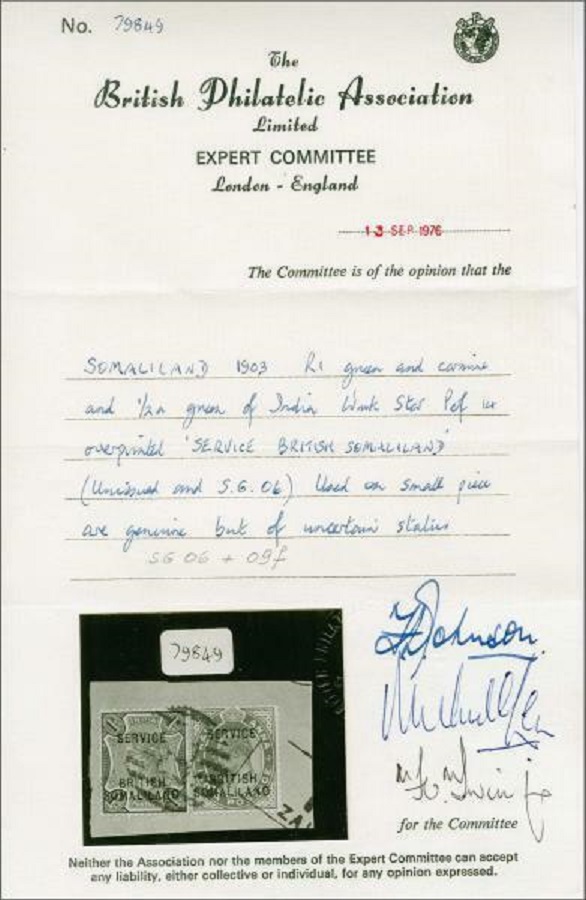 No. 79849
The
British Philatelic Association
Limited
EXPERT COMMITTEE
London - England
13 SEP 1976
The Committee is of the opinion that the
SOMALILAND 1903 R1 green and carmine
and 1/2a green of India Wmk Star Perf 14
overprinted 'SERVICE BRITISH SOMALILAND'
(Unissued and S.G. O6) Used on small piece
are genuine but of uncertain status
SG O6 + O9f
79849
SERVICE SERVICE
BRITISH BRITISH
SOMALILAND SOMALILAND
ZA
Johnson
for the Committee
Neither the Association nor the members of the Expert Committee can accept
any liability, either collective or individual, for any opinion expressed.